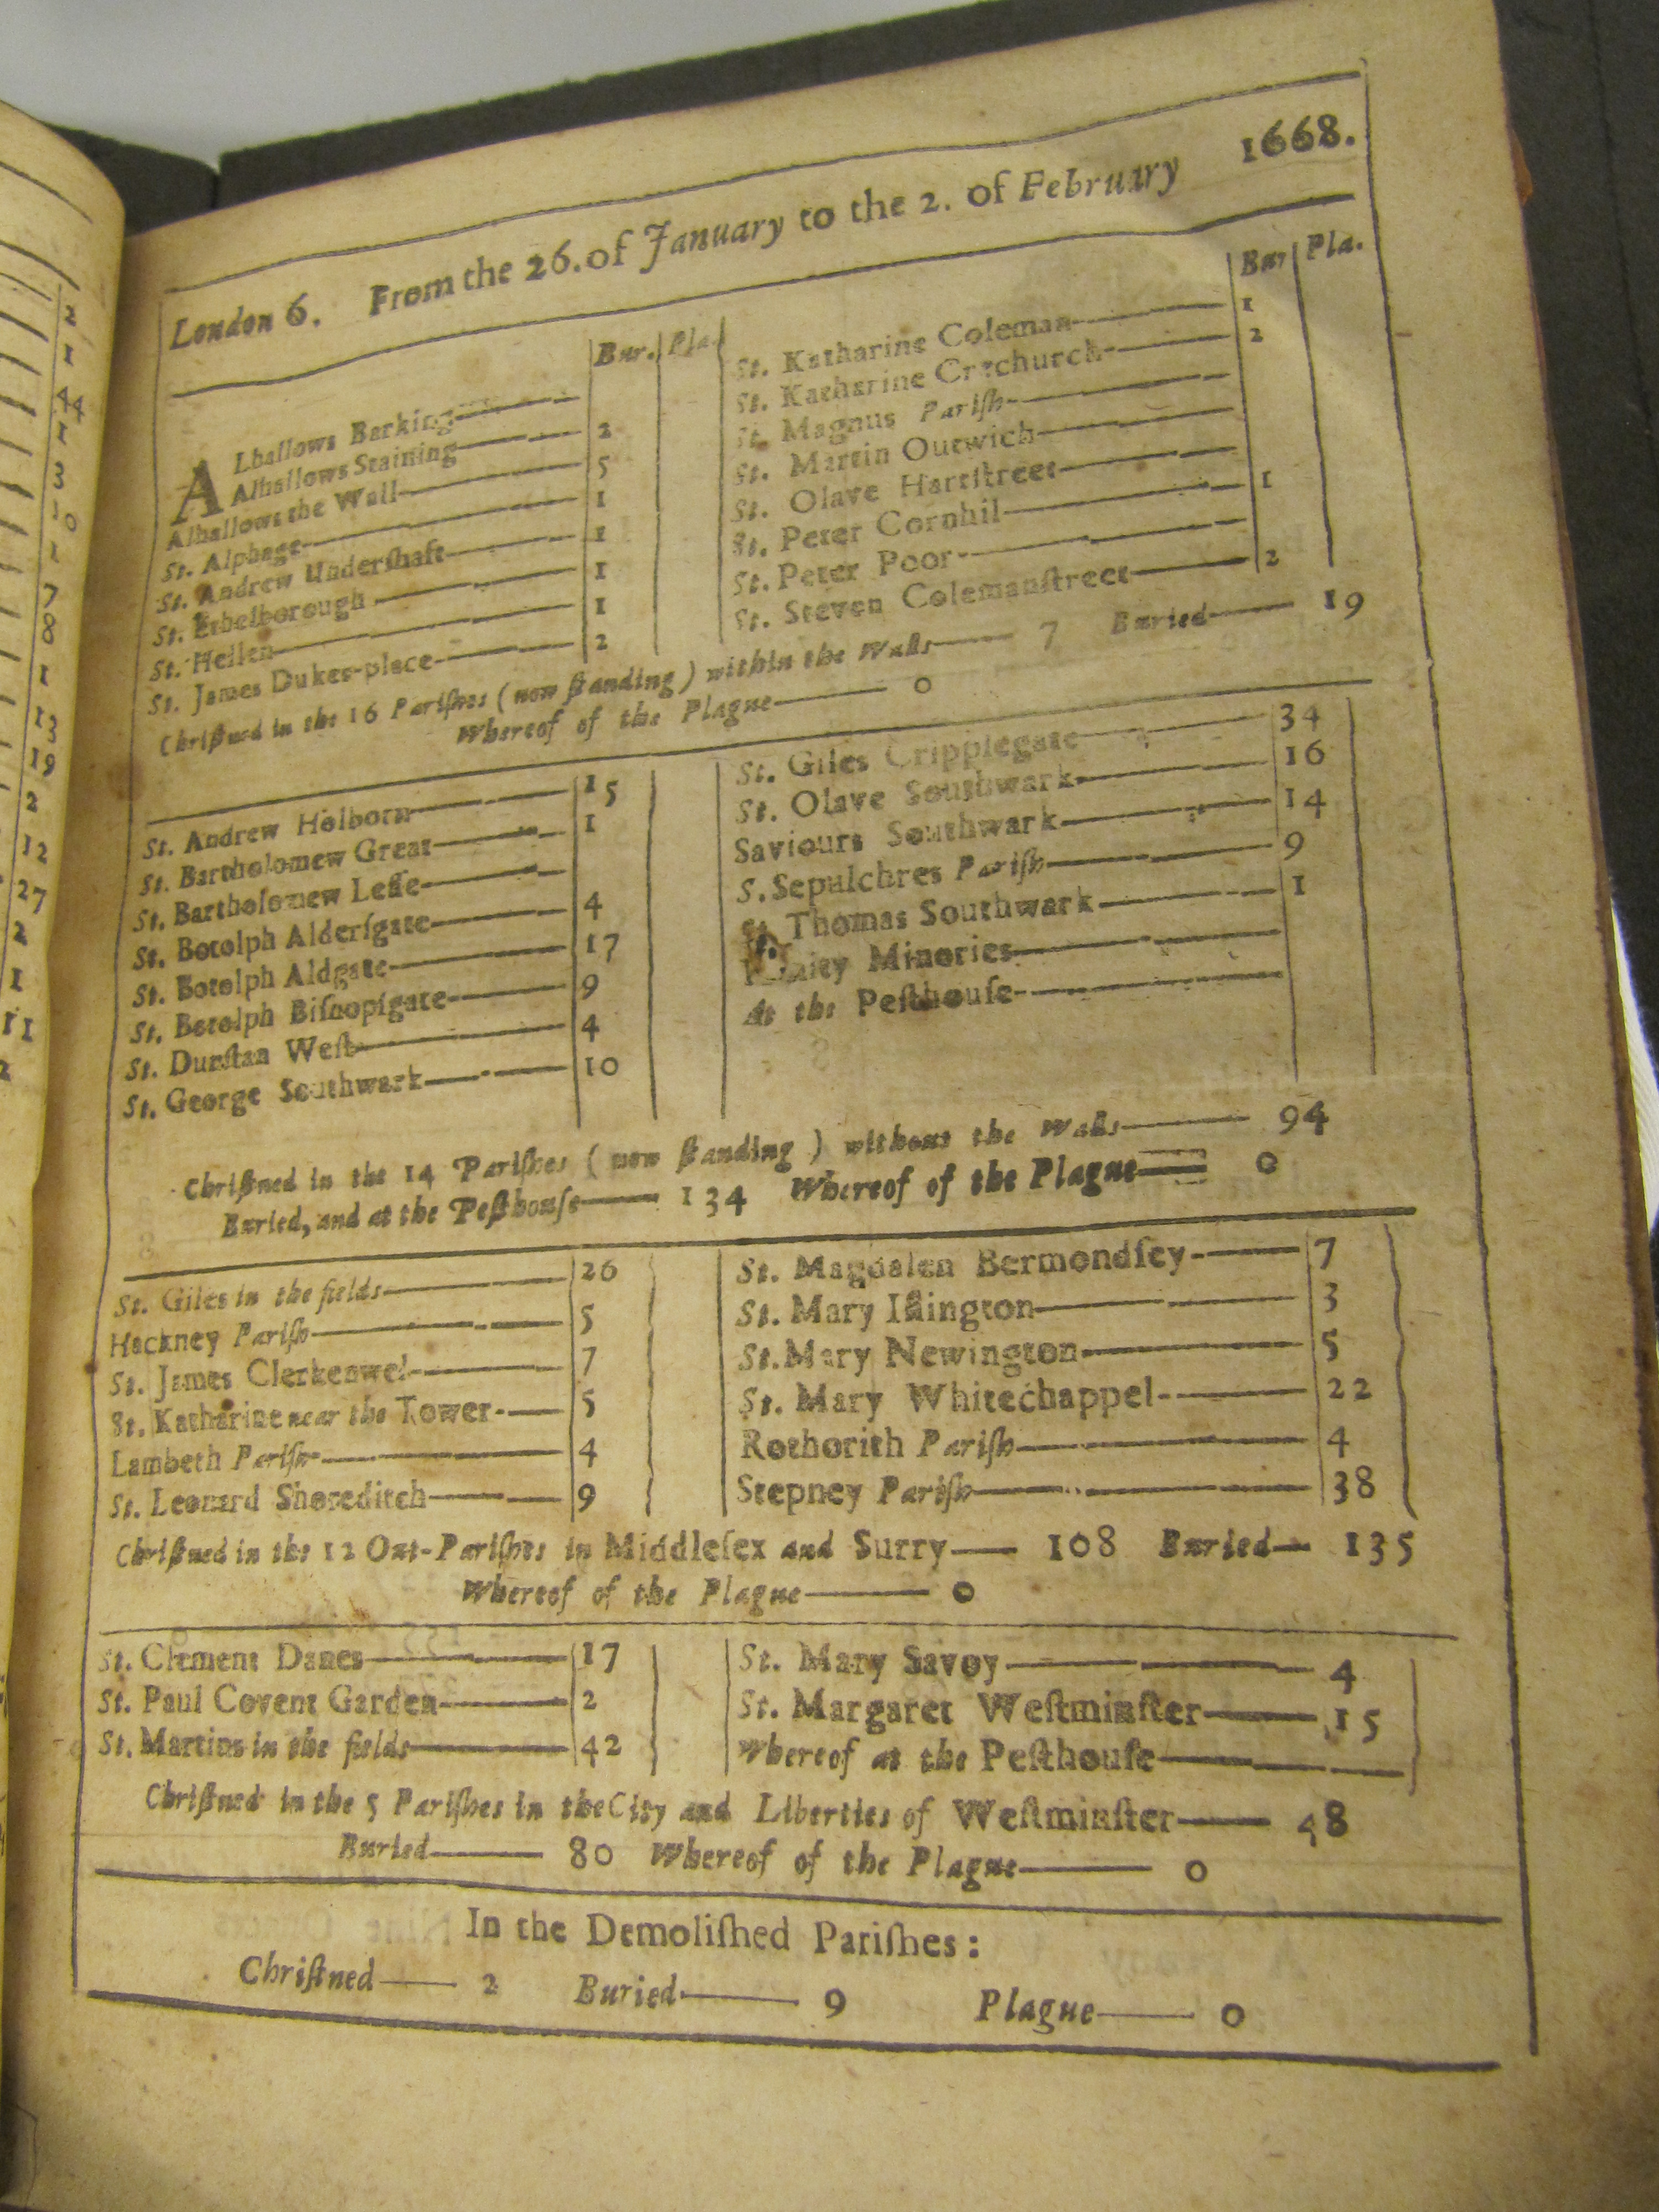 2
1
44
1
3
10
1
7
8
1
13
19
2
12
27
2
1
11
2
London 6. From the 26. of January to the 2. of February 1668.
Bur. Pla.
ALhallows Barking
Alhallows Staining 2
Alhallows the Wall 5
St. Alphage 1
St. Andrew Underſhaft 1
St. Ethelborough 1
St. Hellen 1
St. James Dukes-place 2
Bur Pla.
St. Katharine Coleman 1
St. Katharine Creechurch 2
St. Magnus Pariſh
St. Martin Outwich
St. Olave Hartſtreet
St. Peter Cornhil 1
St. Peter Poor
St. Steven Colemanſtreet 2
Chriſtned in the 16 Pariſhes (now ſtanding) within the Walls 7 Buried 19
Whereof of the Plague 0
St. Andrew Holborn 15
St. Bartholomew Great 1
St. Bartholomew Leſſe
St. Botolph Alderſgate 4
St. Botolph Aldgate 17
St. Botolph Biſhopſgate 9
St. Dunſtan Weſt 4
St. George Southwark 10
St. Giles Cripplegate 34
St. Olave Southwark 16
Saviours Southwark 14
S. Sepulchres Pariſh 9
St. Thomas Southwark 1
Trinity Minories
At the Peſthouſe
Chriſtned in the 14 Pariſhes (now ſtanding) without the Walls 94
Buried, and at the Peſthouſe 134 Whereof of the Plague 0
St. Giles in the fields 26
Hackney Pariſh 5
St. James Clerkenwel 7
St. Katharine near the Tower 5
Lambeth Pariſh 4
St. Leonard Shoreditch 9
St. Magdalen Bermondſey 7
St. Mary Iſlington 3
St. Mary Newington 5
St. Mary Whitechappel 22
Rothorith Pariſh 4
Stepney Pariſh 38
Chriſtned in the 12 Out-Pariſhes in Middleſex and Surry 108 Buried 135
Whereof of the Plague 0
St. Clement Danes 17
St. Paul Covent Garden 2
St. Martins in the fields 42
St. Mary Savoy 4
St. Margaret Weſtminſter 15
Whereof at the Peſthouſe
Chriſtned in the 5 Pariſhes in the City and Liberties of Weſtminſter 48
Buried 80 Whereof of the Plague 0
In the Demoliſhed Pariſhes:
Chriſtned 2 Buried 9 Plague 0